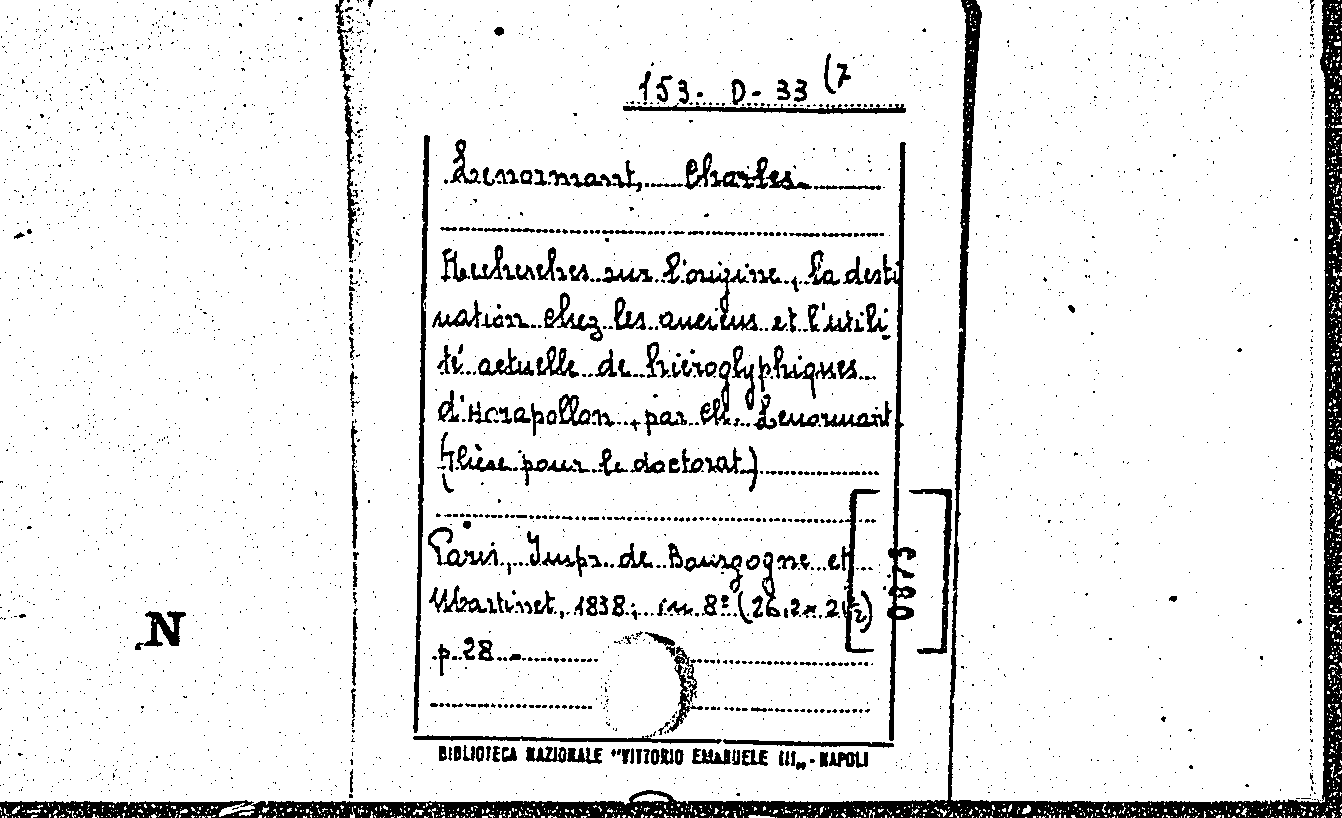 153. D- 33 (7
Lenormant, Charles.
Recherches sur l'origine, la desti
nation chez les anciens et l'utili
té actuelle de hiéroglyphiques
d'Horapollon, par Ch. Lenormant.
(thèse pour le doctorat)
Paris, Impr. de Bourgogne et
Martinet, 1838; in 8º (26,2×21½)
p. 28.-
0873
N
BIBLIOTECA NAZIONALE "VITTORIO EMANUELE III„ - NAPOLI